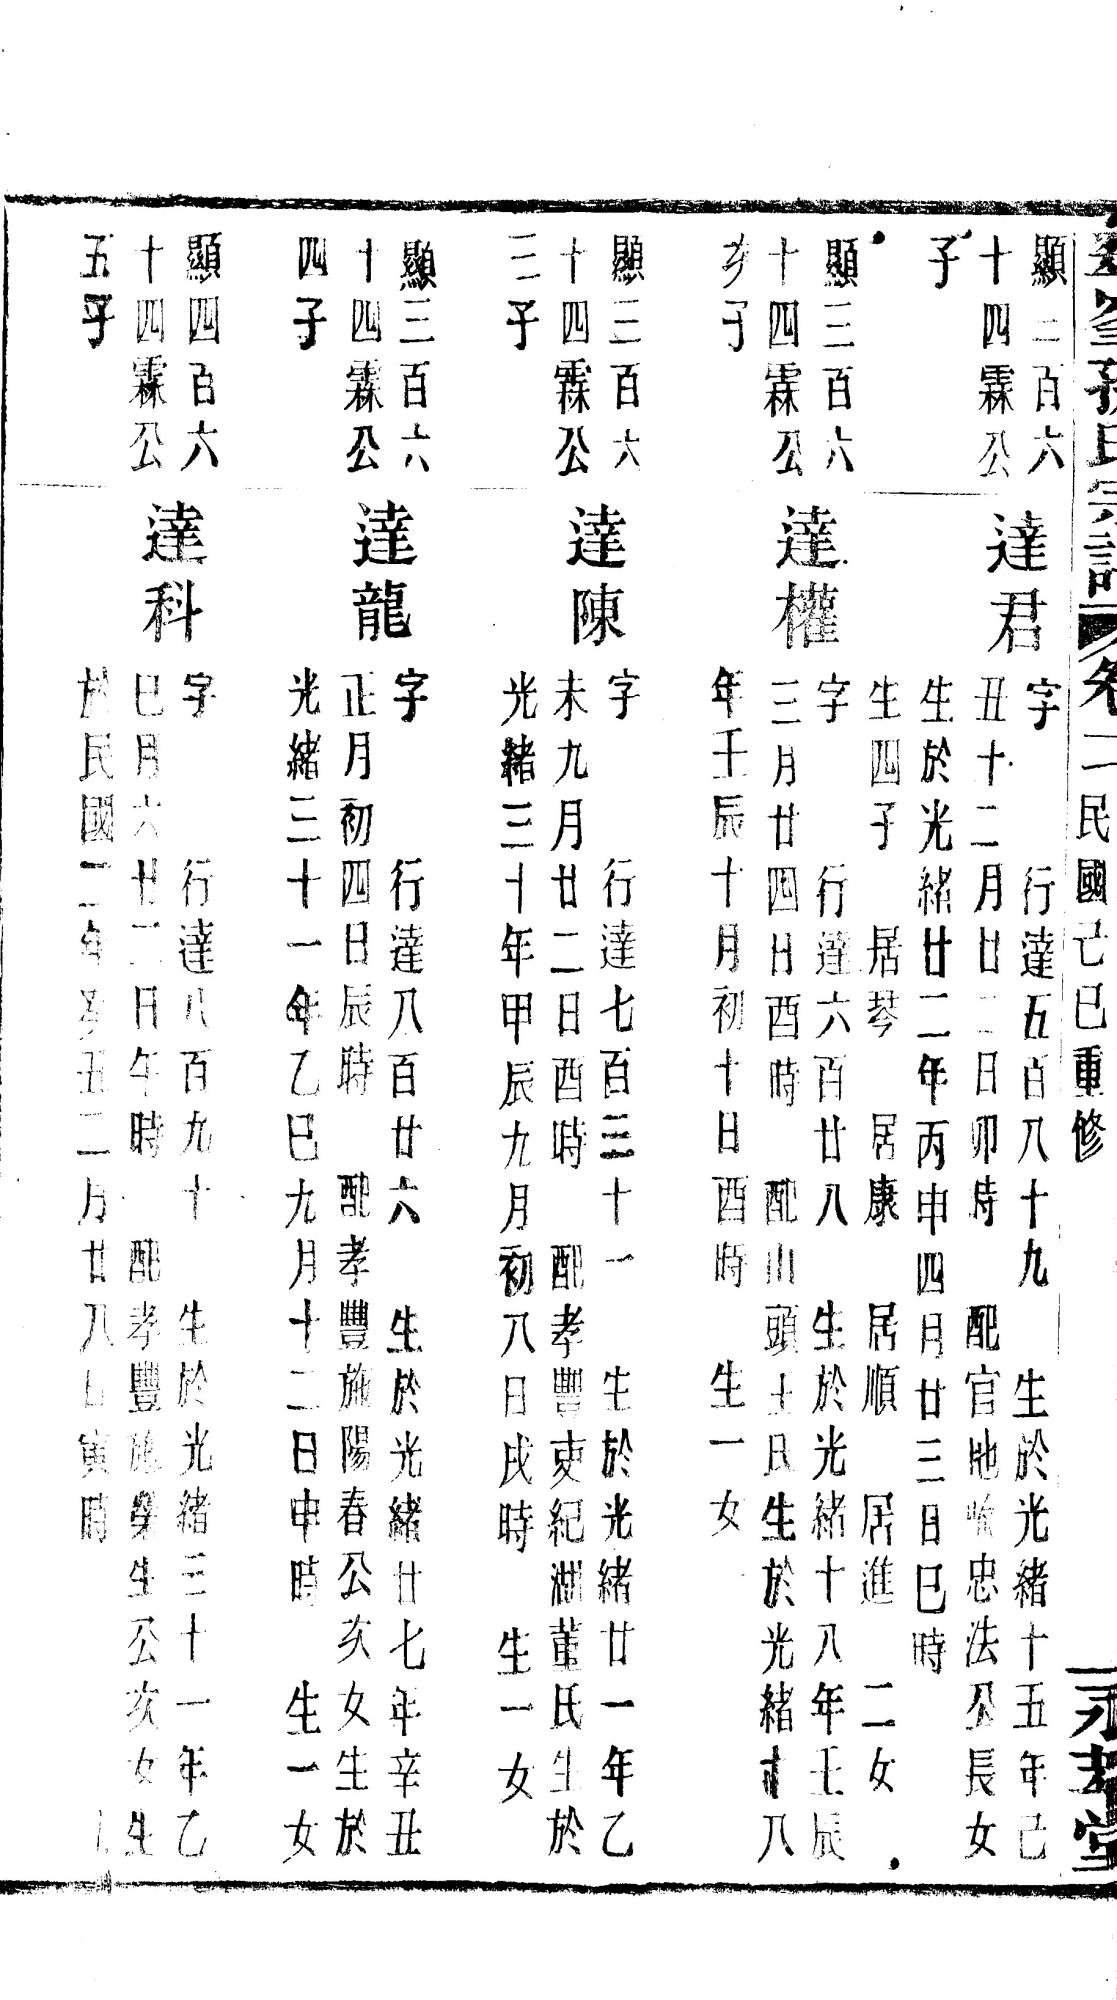 孫氏宗譜 卷二 民國己巳重修
顯三百六
十四霖公
子
達君
字 行達五百八十九 生於光緒十五年己
丑十二月廿二日卯時 配官地 忠法公長女
生於光緒廿二年丙申四月廿三日巳時
生四子 居琴 居康 居順 居進 二女
顯三百六
十四霖公
次子
達權
字 行達六百廿八 生於光緒十八年壬辰
三月廿四日酉時 配山頭王氏生於光緒十八
年壬辰十月初十日酉時 生一女
顯三百六
十四霖公
三子
達陳
字 行達七百三十一 生於光緒廿一年乙
未九月廿二日酉時 配孝豐吏紀湖董氏生於
光緒三十年甲辰九月初八日戌時 生一女
顯三百六
十四霖公
四子
達龍
字 行達八百廿六 生於光緒廿七年辛丑
正月初四日辰時 配孝豐施陽春公次女生於
光緒三十一年乙巳九月十二日申時 生一女
顯四百六
十四霖公
五子
達科
字 行達八百九十 生於光緒三十一年乙
巳月六廿二日午時 配孝豐施榮生公次女生
於民國二年癸丑二月廿八日寅時
堂